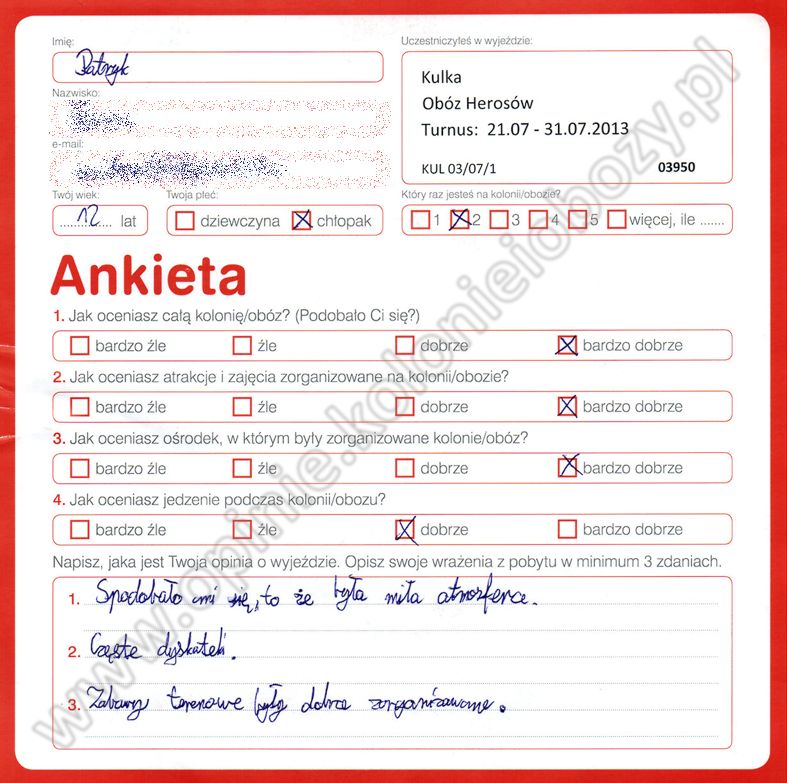 Imię:
Patryk
Uczestniczyłeś w wyjeździe:
Kulka
Obóz Herosów
Turnus: 21.07 - 31.07.2013
KUL 03/07/1 03950
Nazwisko:
e-mail:
Twój wiek:
12 lat
Twoja płeć:
dziewczyna chłopak
Który raz jesteś na kolonii/obozie?
1 2 3 4 5 więcej, ile .......
Ankieta
1. Jak oceniasz całą kolonię/obóz? (Podobało Ci się?)
bardzo źle źle dobrze bardzo dobrze
2. Jak oceniasz atrakcje i zajęcia zorganizowane na kolonii/obozie?
bardzo źle źle dobrze bardzo dobrze
3. Jak oceniasz ośrodek, w którym były zorganizowane kolonie/obóz?
bardzo źle źle dobrze bardzo dobrze
4. Jak oceniasz jedzenie podczas kolonii/obozu?
bardzo źle źle dobrze bardzo dobrze
Napisz, jaka jest Twoja opinia o wyjeździe. Opisz swoje wrażenia z pobytu w minimum 3 zdaniach.
1. Spodobało mi się, to że była miła atmosfera.
2. Częste dyskateki.
3. Zabawy terenowe były dobrze zorganizowane.
www.opinie.kolonieiobozy.pl